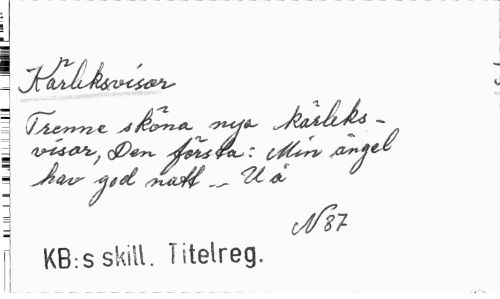 Kärleksvisor
Trenne sköna nya kärleks-
visor, Den första: Min ängel
hav god natt... U å
N 87
KB:s skill. Titelreg.